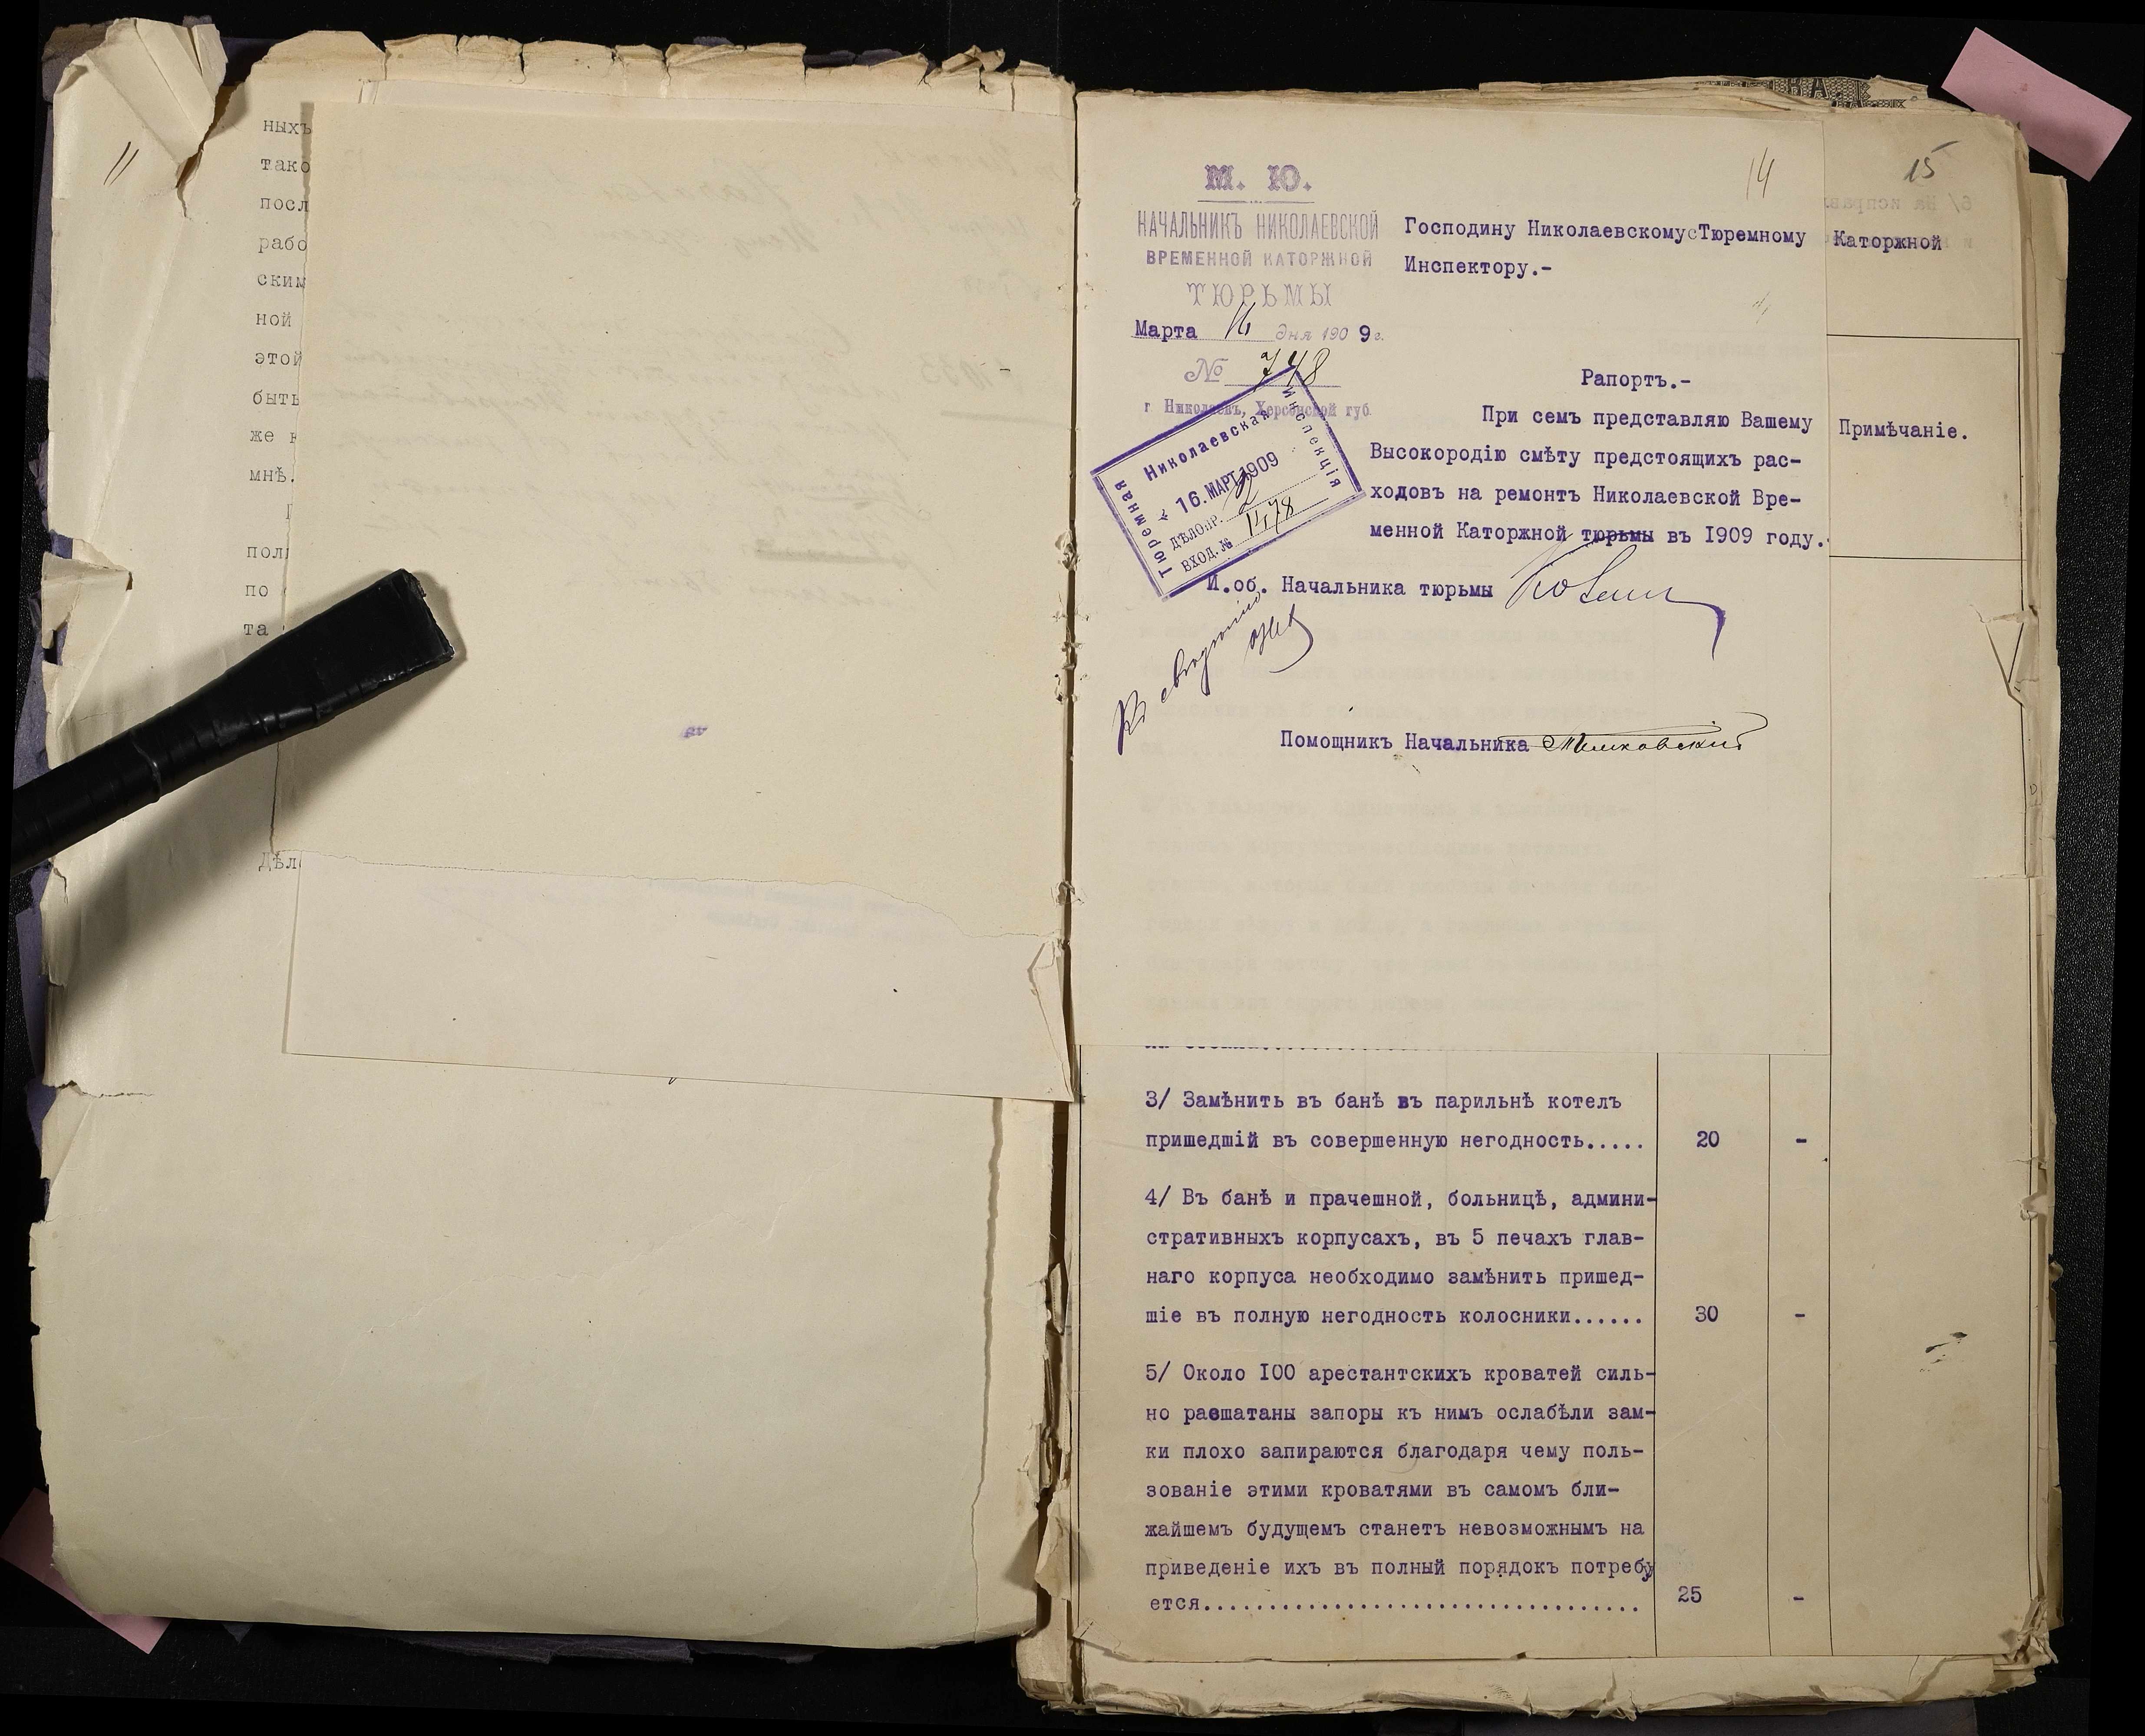 11
ныхъ
тако
посл
рабо
ским
ной
этой
быть
же к
мнѣ.
пол
по
та
Дѣл
14
15
М. Ю.
НАЧАЛЬНИКЪ НИКОЛАЕВСКОЙ
ВРЕМЕННОЙ КАТОРЖНОЙ
ТЮРЬМЫ
Марта 16 дня 1909 г.
№ 748
г. Николаевъ, Херсонской губ.
Николаевская
Тюремная
Инспекція
16.МАРТ.1909
ДѢЛОПР. 2
ВХОД.№ 1478
Господину Николаевскому Тюремному
Инспектору.-
Рапортъ.-
При семъ представляю Вашему
Высокородію смѣту предстоящихъ рас-
ходовъ на ремонтъ Николаевской Вре-
менной Каторжной тюрьмы въ I909 году.
И.об. Начальника тюрьмы
Помощникъ Начальника
Каторжной
Примѣчаніе.
3/ Замѣнить въ банѣ въ парильнѣ котелъ
пришедшій въ совершенную негодность..... 20 -
4/ Въ банѣ и прачешной, больницѣ, админи-
стративныхъ корпусахъ, въ 5 печахъ глав-
наго корпуса необходимо замѣнить пришед-
шіе въ полную негодность колосники...... 30 -
5/ Около I00 арестантскихъ кроватей силь-
но расшатаны запоры къ нимъ ослабѣли зам-
ки плохо запираются благодаря чему поль-
зованіе этими кроватями въ самомъ бли-
жайшемъ будущемъ станетъ невозможнымъ на
приведеніе ихъ въ полный порядокъ потребу
ется.................................... 25 -